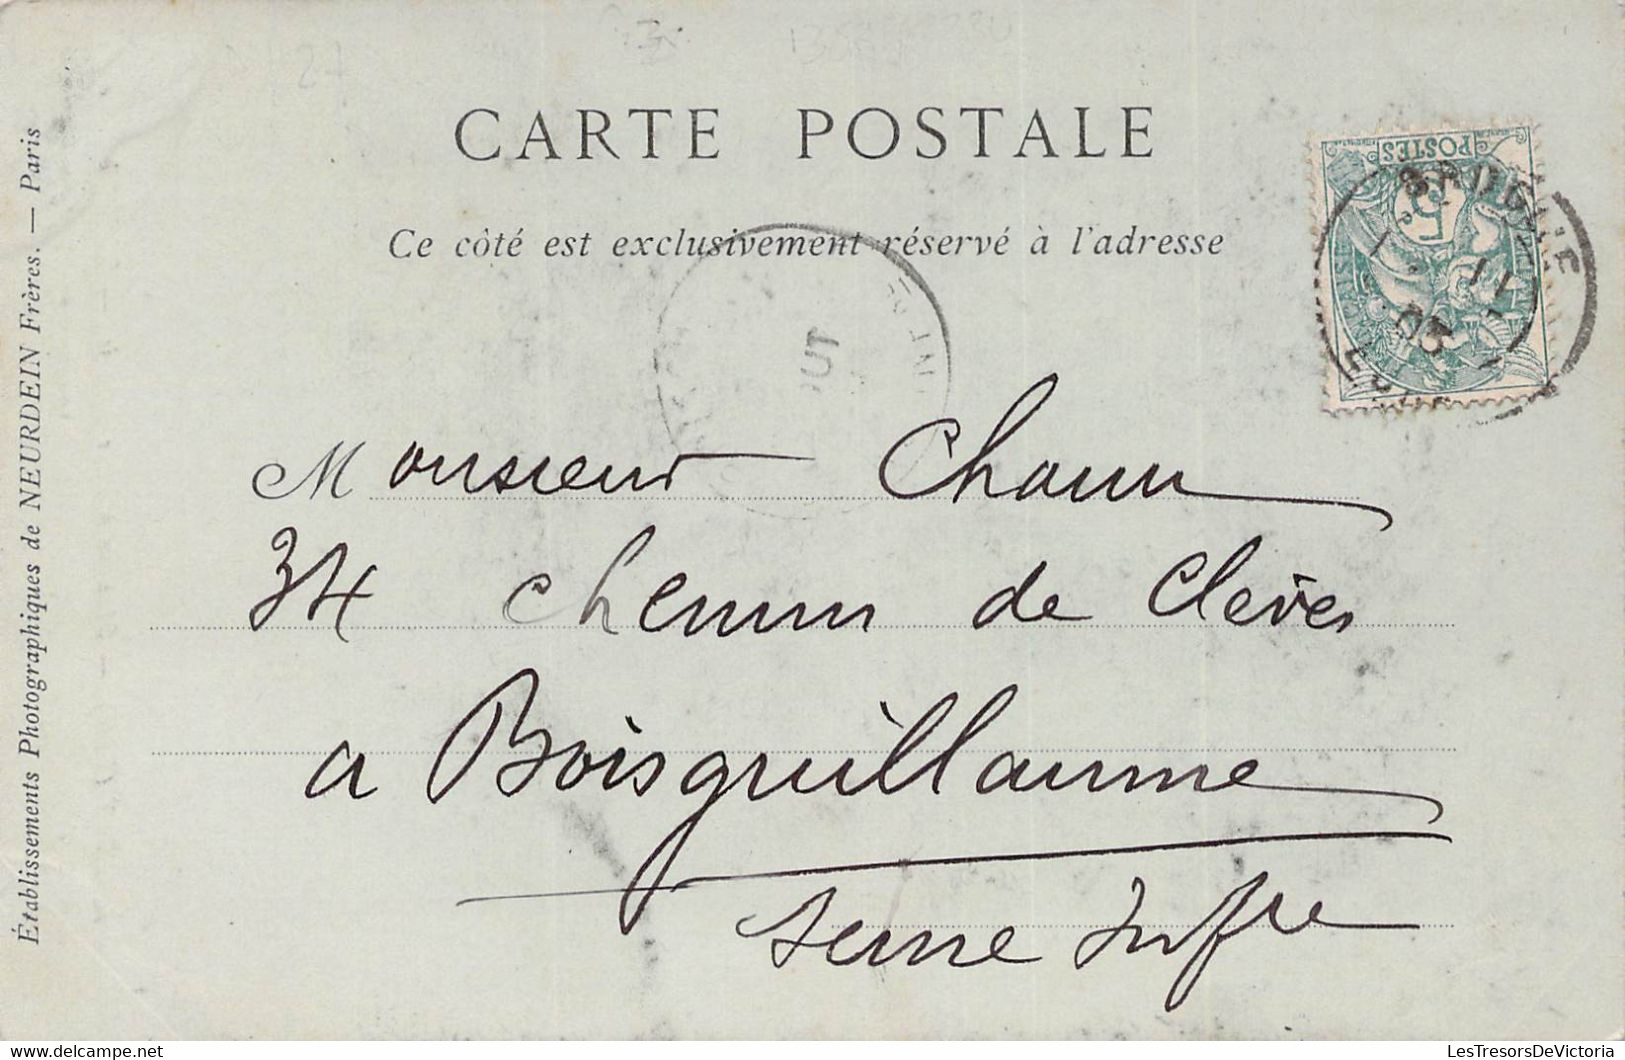 CARTE POSTALE
Ce côté est exclusivement réservé à l'adresse
Établissements Photographiques de NEURDEIN Frères. — Paris
POSTES
5
03
Monsieur
34 chemin de Clères
a Boisguillaume
Seine Infre
LesTresorsDeVictoria